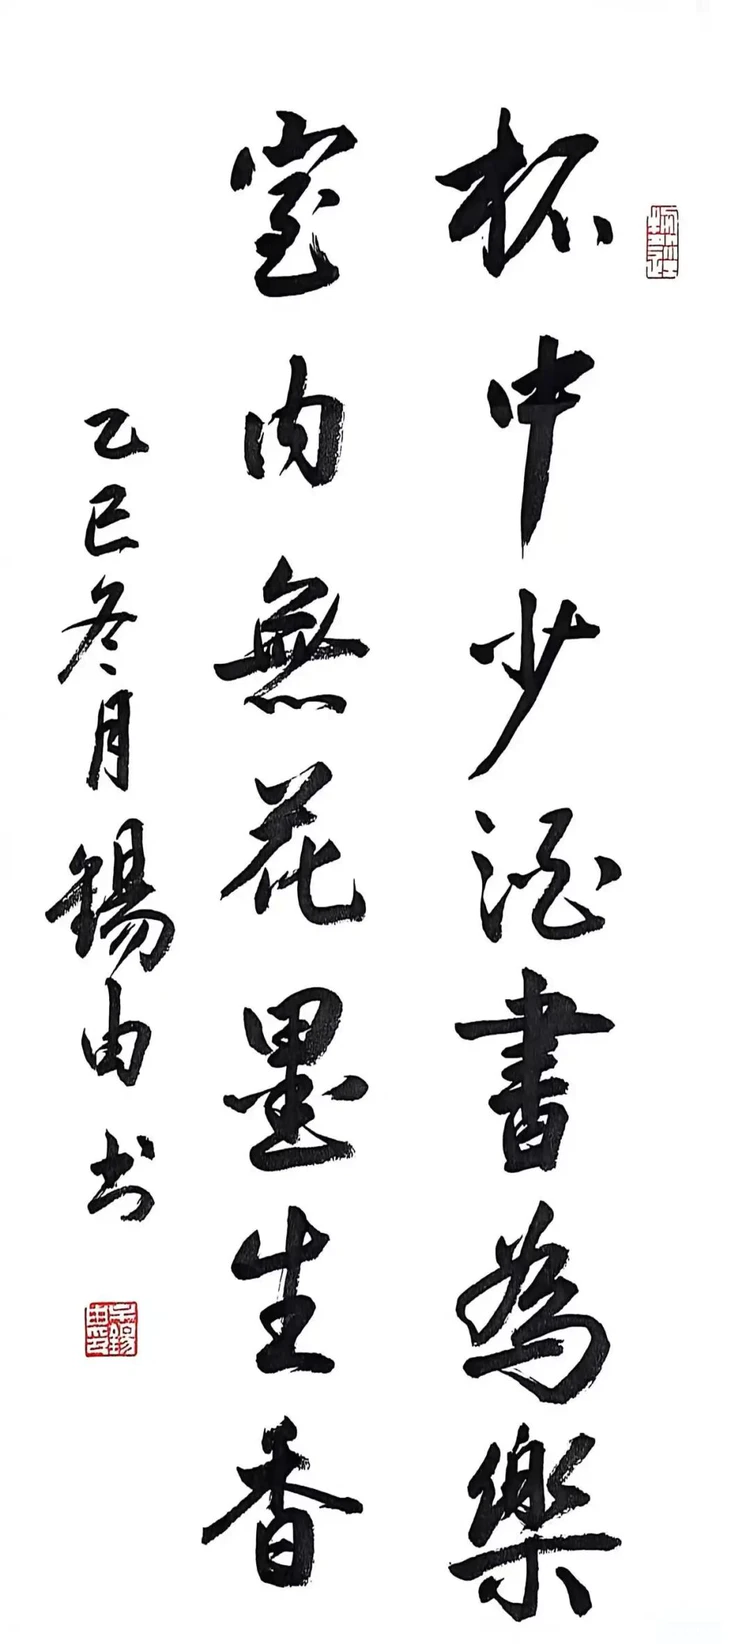 杯中少酒書為樂
室内無花墨生香
乙巳冬月錫由书